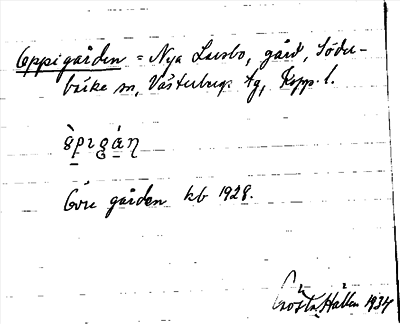 Oppigården = Nya Larsbo, gård, Söder-
bärke sn, Västerbergs tg, Kopp. l.
Övre gården kb 1928.
Gösta Hallen 1934